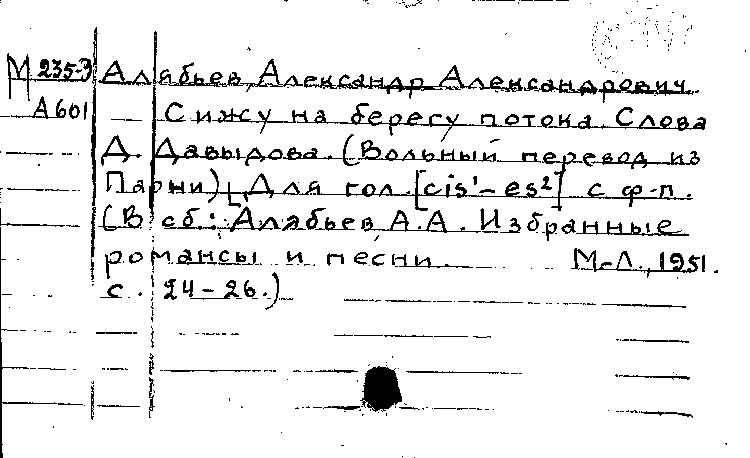 М 235-3 Алябьев, Александр Александрович.
А601 Сижу на берегу потока. Слова
Д. Давыдова. (Вольный перевод из
Парни) Для гол. [cis¹-es²] с ф-п.
(В сб: Алябьев А.А. Избранные
романсы и песни. М-Л., 1951.
с. 24-26.)